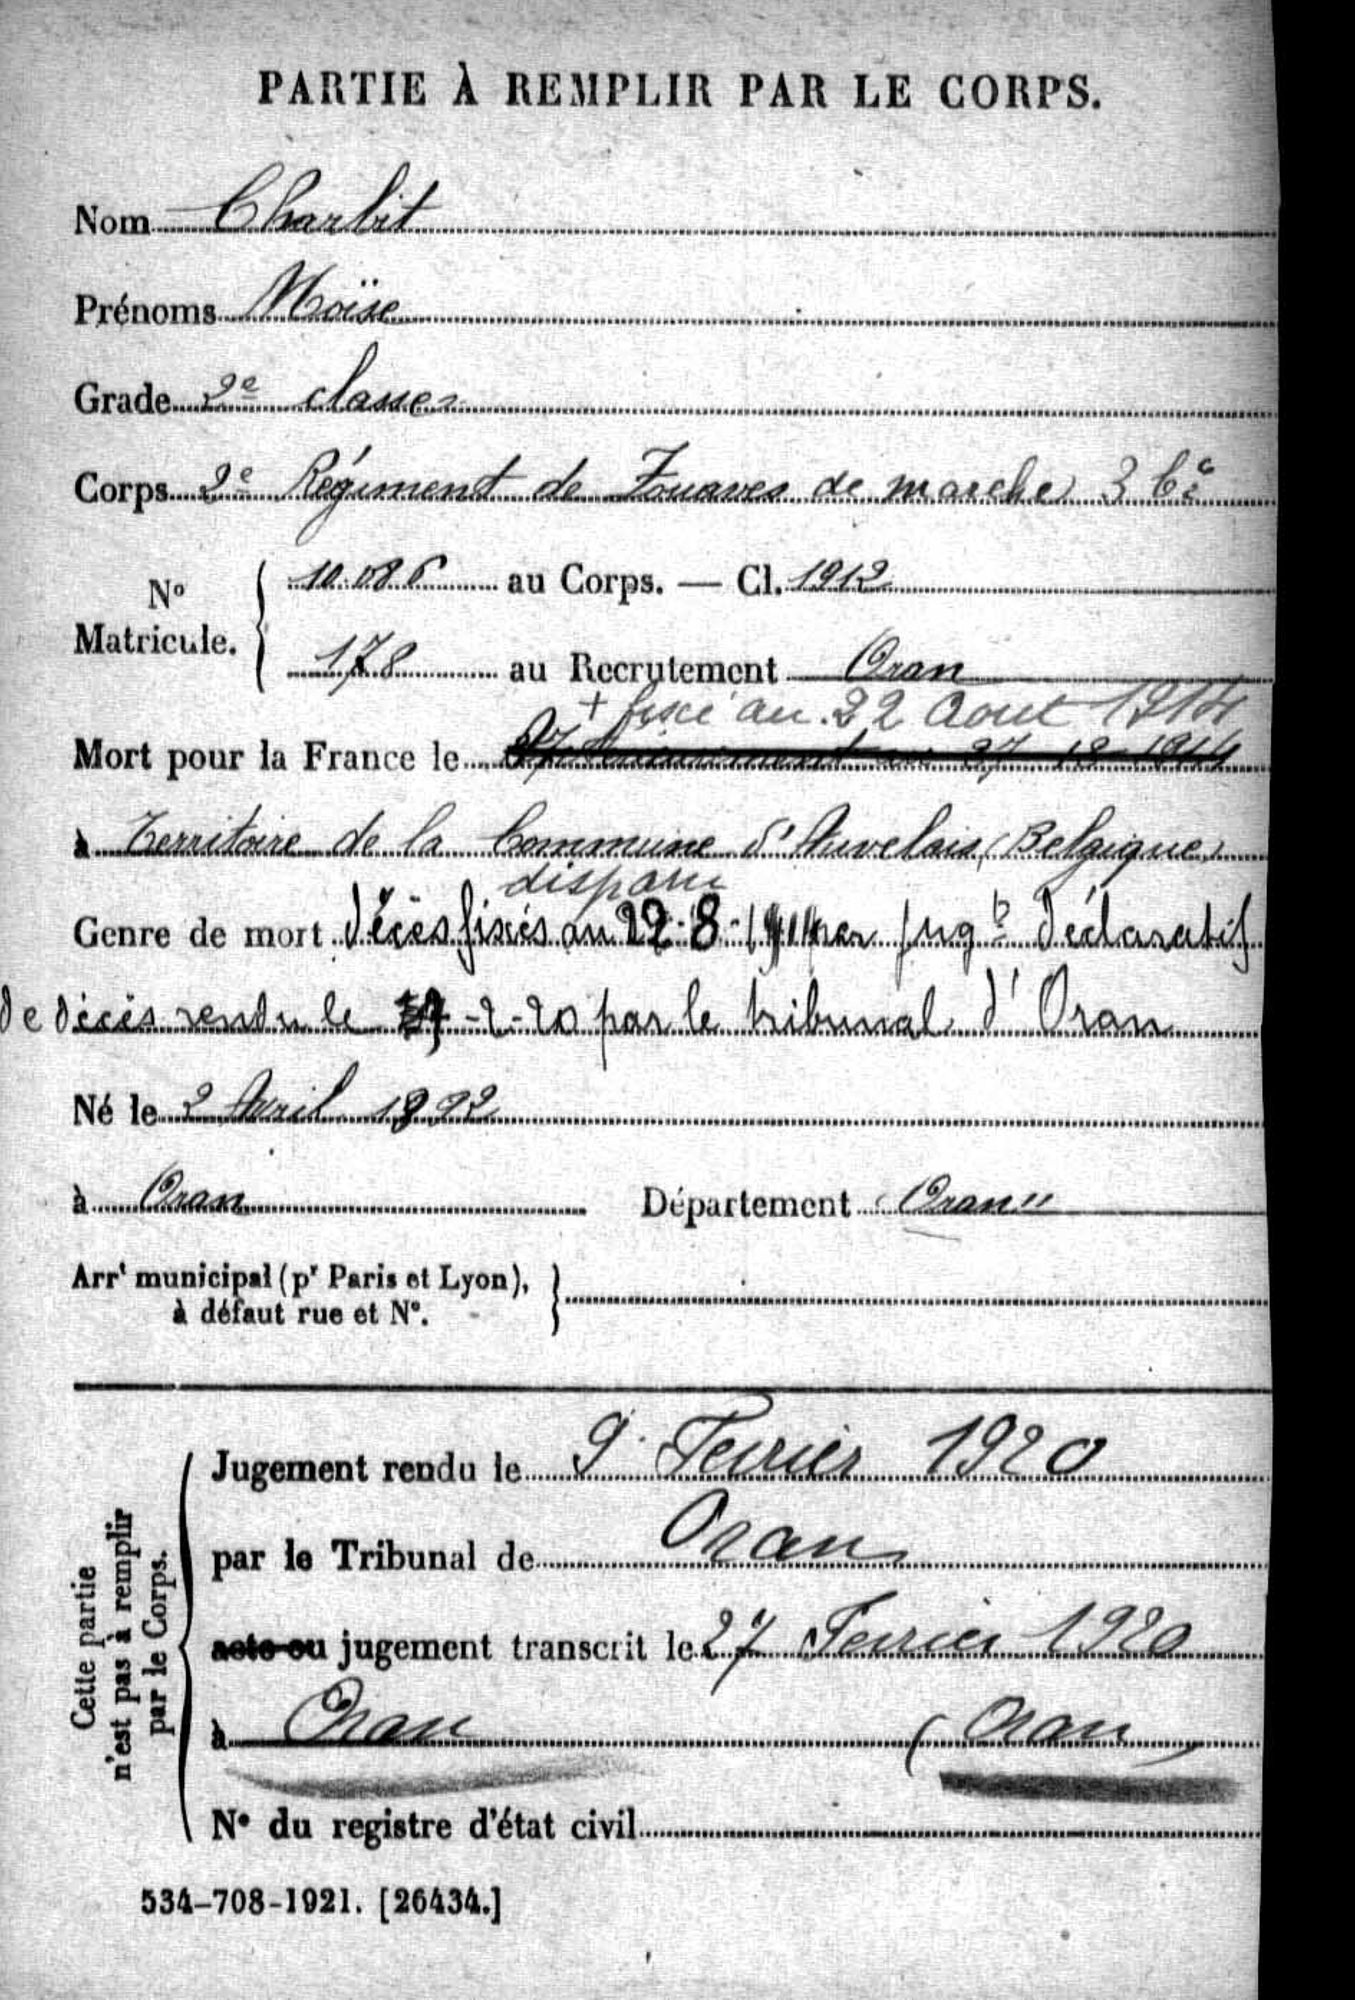 PARTIE À REMPLIR PAR LE CORPS.
Nom Charbit
Prénoms Moïse
Grade 2e classe
Corps 2e Régiment de Zouaves de marche 3 Cie
No Matricule. 10.086 au Corps. — Cl. 1912
178 au Recrutement Oran
+ fixé au 22 Aout 1914
Mort pour la France le 27 12 1914
à Territoire de la Commune d'Auvelais (Belgique)
disparu
Genre de mort décès fixés au 22-8-1914 par jugt Déclaratif
de décès rendu le -2-20 par le tribunal d'Oran
Né le 2 Avril 1892
à Oran Département Oran
Arrt municipal (pr Paris et Lyon),
à défaut rue et No.
Cette partie
n'est pas à remplir
par le Corps.
Jugement rendu le 9 Fevrier 1920
par le Tribunal de Oran
acte ou jugement transcrit le 27 Fevrier 1920
à Oran (Oran)
No du registre d'état civil
534-708-1921. [26434.]